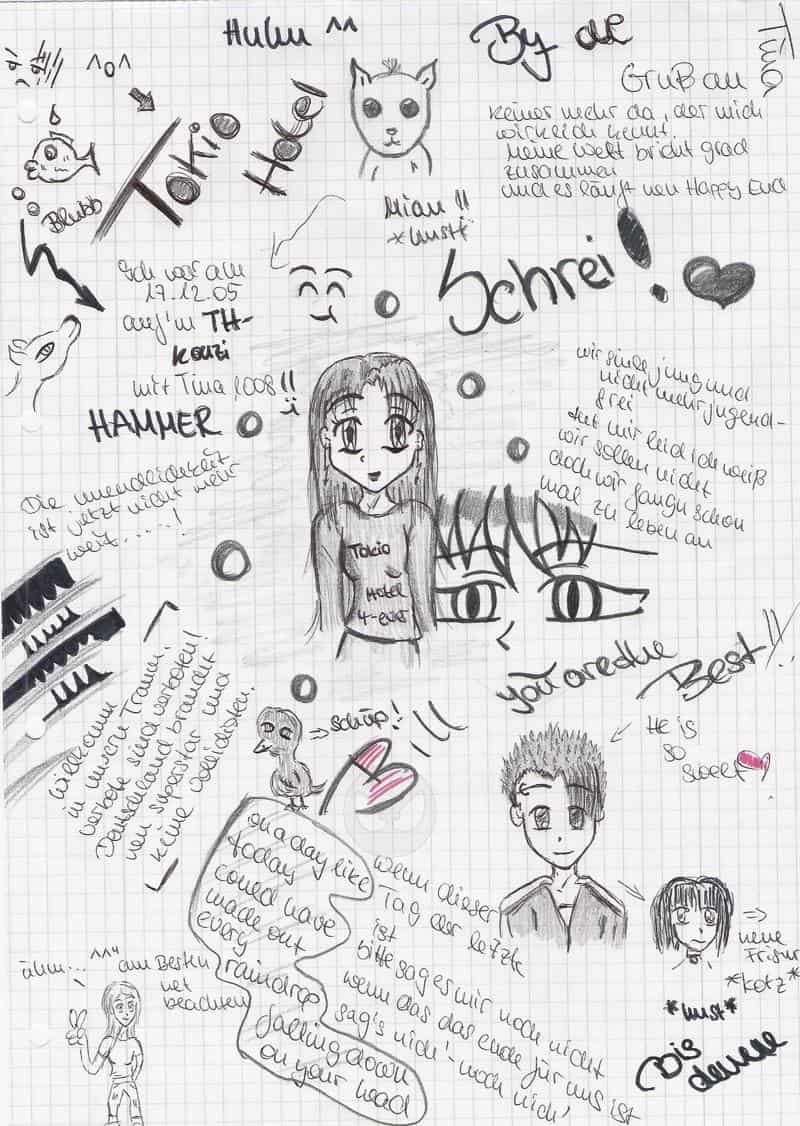 Huhu ^^
By
Tina
^o^
Gruß an
Tokio
Hotel
keiner mehr da, der mich
wirklich kennt.
Meine Welt bricht grad
zusammen
und es läuft nen Happy End
Blubb
Miau !!
*hust*
Schrei!
Ich war am
17.12.05
auf'm TH-
konzi
mit Tina 2008!!
HAMMER
wir sind jung und
nicht mehr jugend-
frei
tut mir leid ich weiß
wir sollen nicht
doch wir fangn schon
mal zu leben an
Die unendlichkeit
ist jetzt nicht mehr
weit.....!
Tokio
Hotel
4-ever
you are the
Best!!
willkomm
in unserm Traum.
verbote sind verboten!
Deutschland braucht
nen superstar und
keine vollidioten.
=> schüp!
He is
so
sweet
on a day like
today
could have
made out
every
raindrop
falling down
on your head
wenn dieser
Tag der letzte
ist
bitte sag es mir noch nicht
wenn das das ende für uns ist
sag's nich' - noch nich'
=>
neue
Frisur
*kotz*
*hust*
Bis
denne
ähm... ^^"
am Besten
net
beachten